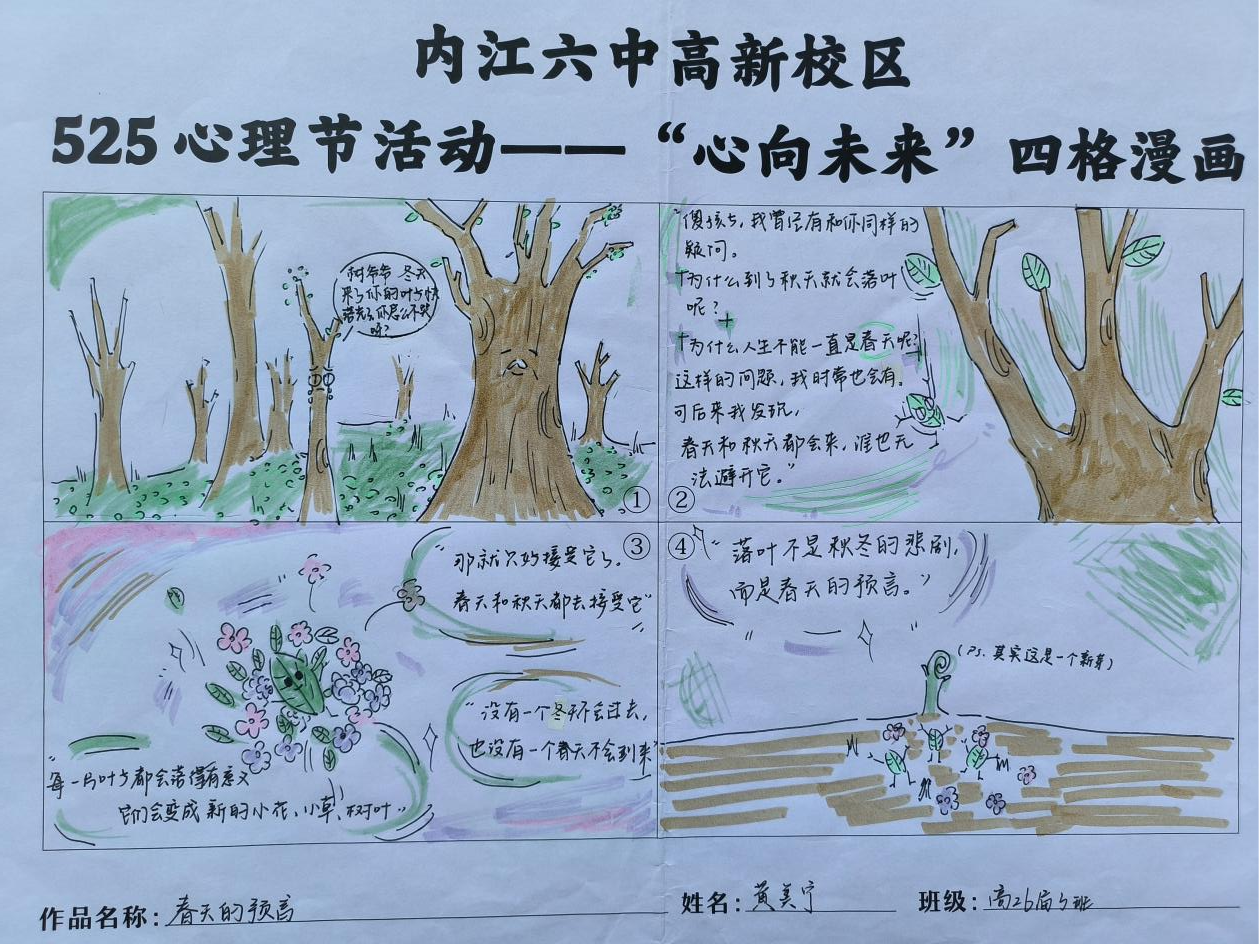 内江六中高新校区
525心理节活动——“心向未来”四格漫画
树爷爷 冬天
来了你的叶子快
落光了你怎么不哭
呀?
①
“傻孩子,我曾经有和你同样的
疑问。
为什么到了秋天就会落叶
呢?
为什么人生不能一直是春天呢?
这样的问题,我时常也会有。
可后来我发现,
春天和秋天都会来,谁也无
法避开它。”
②
“那就只好接受它了。
春天和秋天都去接受它”
③
“没有一个冬天不会过去,
也没有一个春天不会到来”
“每一片叶子都会落得有意义
它们会变成新的小花、小草、树叶”
④
“落叶不是秋冬的悲剧,
而是春天的预言。”
(Ps.其实这是一个新芽)
作品名称:春天的预言
姓名:黄美宁
班级:高26届5班